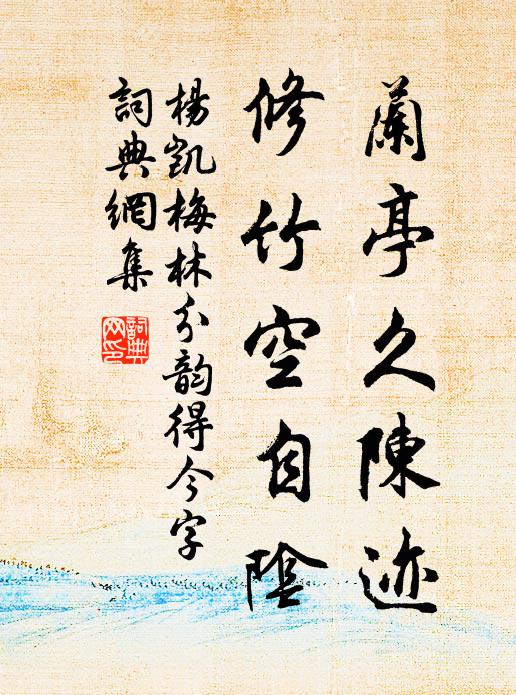 蘭亭久陳迹
修竹空自陰
楊凱梅林分韵得今字
詞典網集
詞典
网印